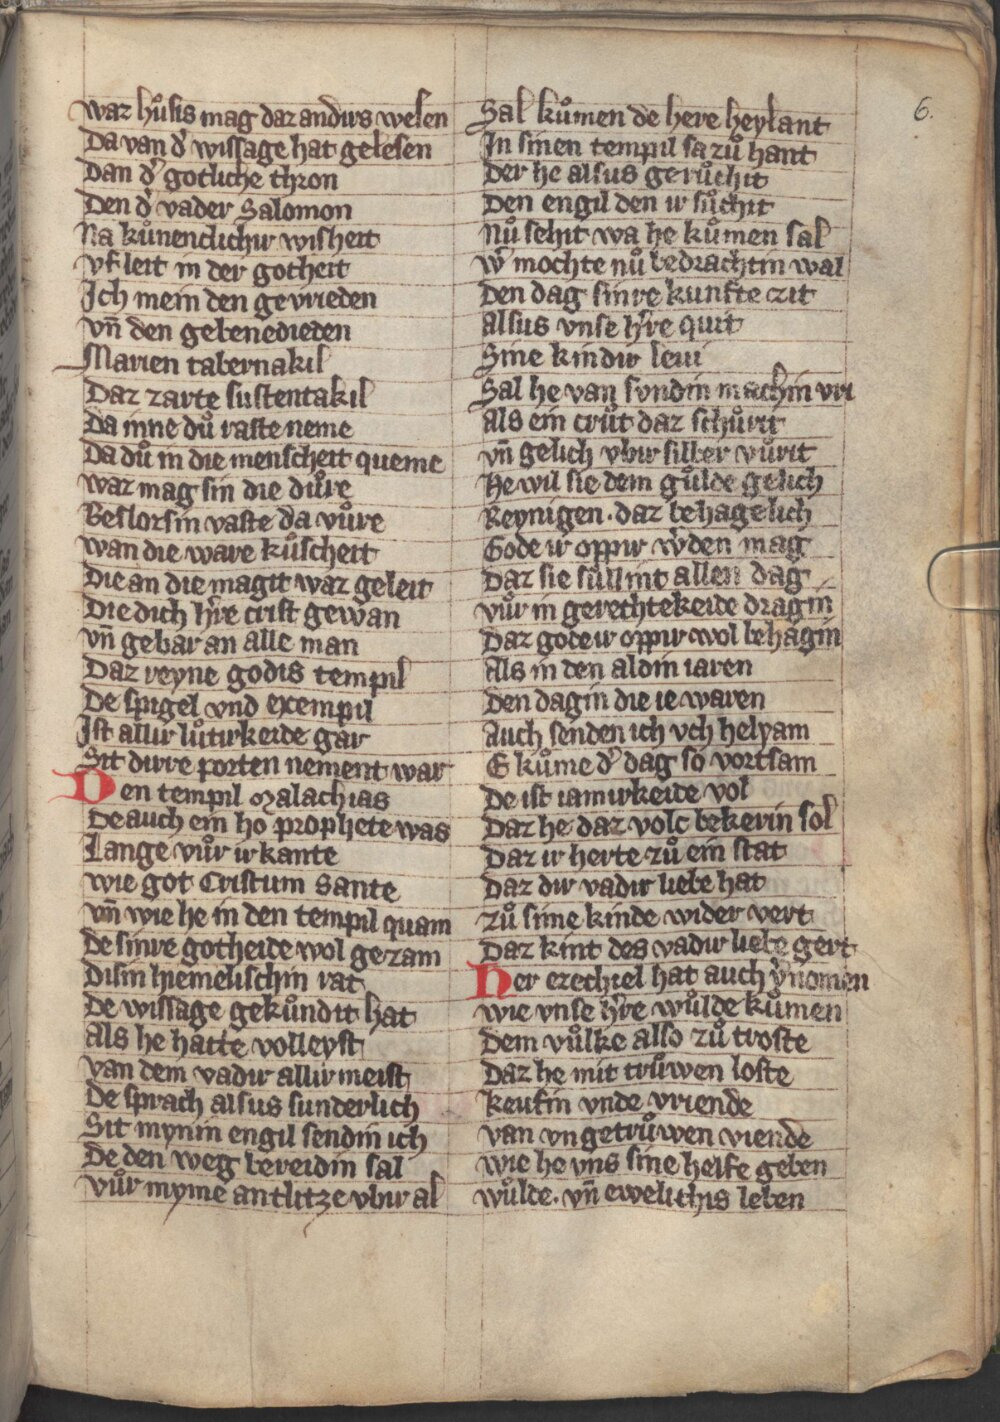 war hůsis mag daz andirs wesen
Da van d' wissage hat gelesen
Dan d' gotliche thron
Den d' vader Salomon
Na kůnenclichir wisheit
Vf leit in der gotheit
Ich mein den gevrieden
vn̄ den gebenedieden
Marien tabernakil
Daz zarte sustentakil
Da inne dů raste neme
Da dů in die menscheit queme
war mag sin die důre
Beslozsin vaste da vůre
wan die ware kůscheit
Die an die magit war geleit
Die dich h're crist gewan
vn̄ gebar an alle man
Daz reyne godis tempil
De spigel vnd exempil
Ist allir lůtirkeide gar
Sit dirre porten nement war
Den tempil Malachias
De auch ein ho prophete was
Lange vůr irkante
wie got Cristum sante
vn̄ wie he in den tempil quam
De sinre gotheide wol gezam
Disin hiemelischin rat
De wissage gekůndit hat
als he hatte volleyst
van dem vadir allir meist
De sprach alsus sunderlich
Sit mynin engil sendin ich
De den weg bereidin sal
vůr myme antlitze vbir al
Sal kůmen de here heylant
In sinen tempil sa zů hant
Der he alsus gerůchit
Den engil den ir sůchit
Nů sehit wa he kůmen sal
w' mochte nů bedrachtin wal
Den dag sinre kunfte zit
alsus vnse h're quit
Sine kindir leui
Sal he van sundin machin vri
als ein crůt daz schůrit
vn̄ gelich vbir silber vůrit
He wil sie dem gůlde gelich
Reynigen . daz behagelich
Gode ir oppir w'den mag
Daz sie sůllint allen dag
vůr in gerechtekeide dragin
Daz gode ir oppir wol behagin
als in den aldin iaren
Den dagin die ie waren
Auch senden ich vch helyam
E kůme d' dag so vortsam
De ist iamirkeide vol
Daz he daz volc bekerin sol
Daz ir herte zů ein stat
Daz dir vadir liebe hat
zů sime kinde wider vert
Daz kint des vadir liebe gert
Her ezechiel hat auch v'nomen
wie vnse h're wůlde kůmen
Dem vůlke also zů troste
Daz he mit trůwen loste
keufin vnde vriende
van vngetrůwen viende
wie he vns sine helfe geben
wůlde . vn̄ ewelithis leben
6.